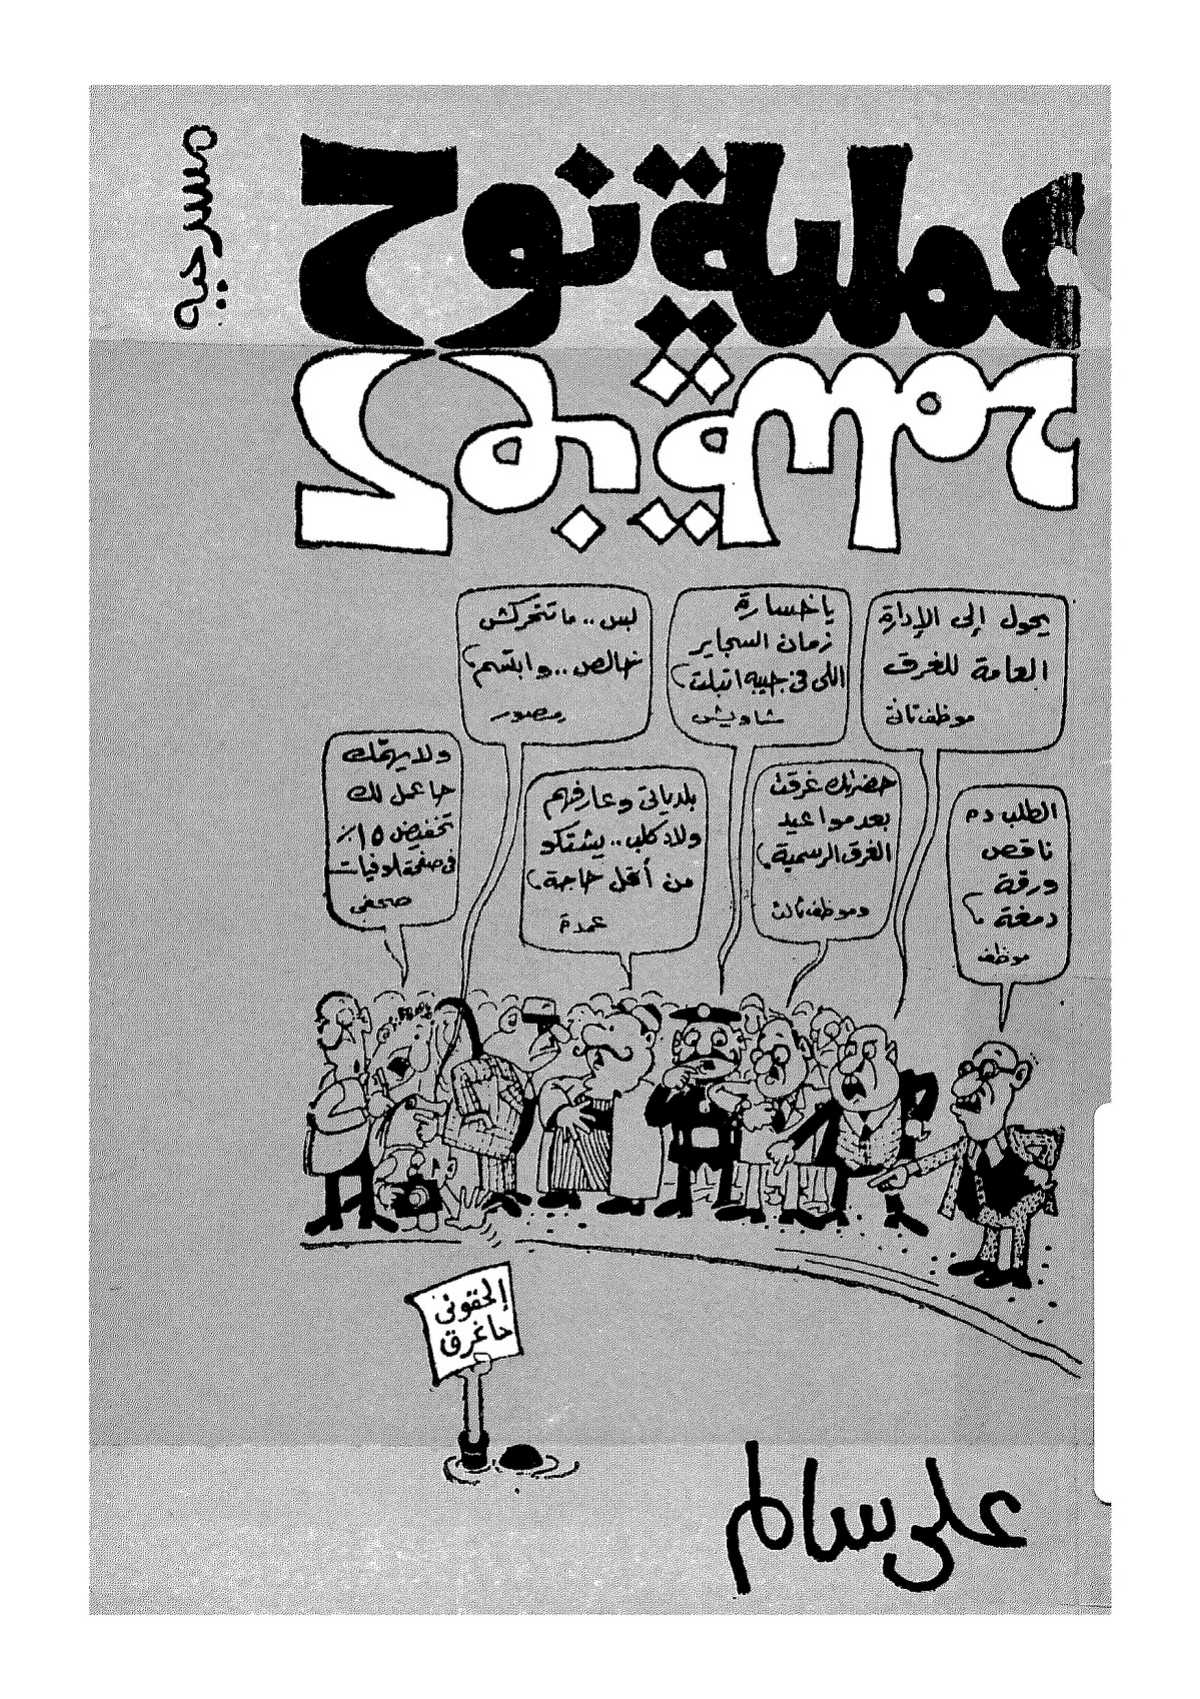 مسرحية
عملية نوح
يحول إلى الإدارة
العامة للغرق
موظف تانى
يا خسارة
زمان السجاير
اللى فى جيبه اتبلت
شاويش
بس .. ما تتحركش
خالص .. وابتسم
مصور
الطلب دم
ناقص
ورقة
دمغة
موظف
حضرتك غرقت
بعد مواعيد
الغرق الرسمية
وموظف تالت
بلدياتى وعارفهم
ولاد كلب .. يشتكو
من أقل حاجة
عمدة
ولا يهمك
حاعمل لك
تخفيض ١٥٪
فى صفحة الوفيات
صحفى
إلحقونى
حاغرق
على سالم